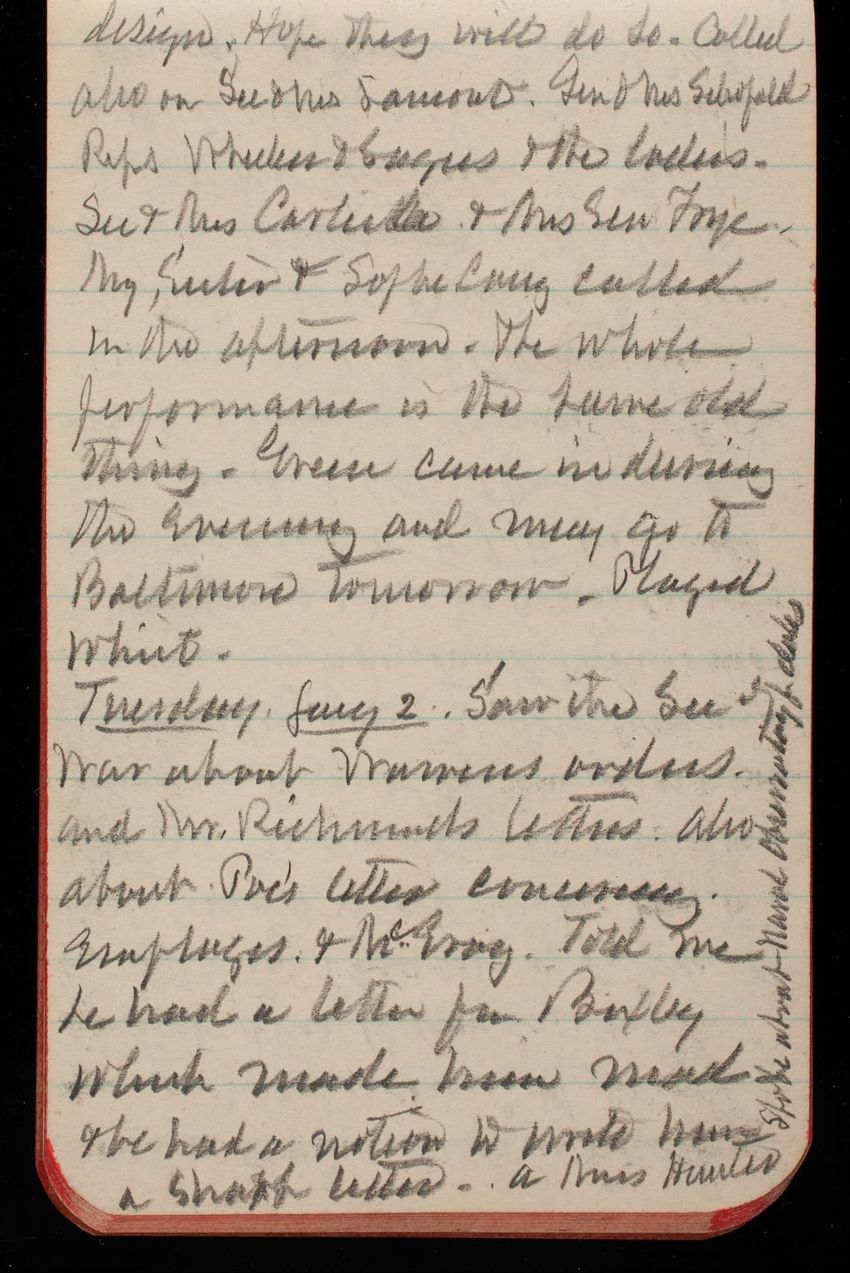 design. Hope they will do so. Called
also on Sec & Mrs Lamont. Gen & Mrs Schofield
Reps Wheeler & & the ladies.
Sec & Mrs Carlisle & Mrs Gen Frye.
My, & Sophe Long called
in the afternoon. The whole
performance is the same old
thing. Green came in during
the evening and may go to
Baltimore tomorrow. Played
Whist.
Tuesday. Jany 2. Saw the Sec of
War about Warrens orders.
and Mr. Richmonds letters. also
about Poe's letter concerning
Employes. & Told me
he had a letter fm Bixby
which made him mad
& he had a notion to write him
a sharp letter. A Miss Hunter
Spoke about Naval Observatory